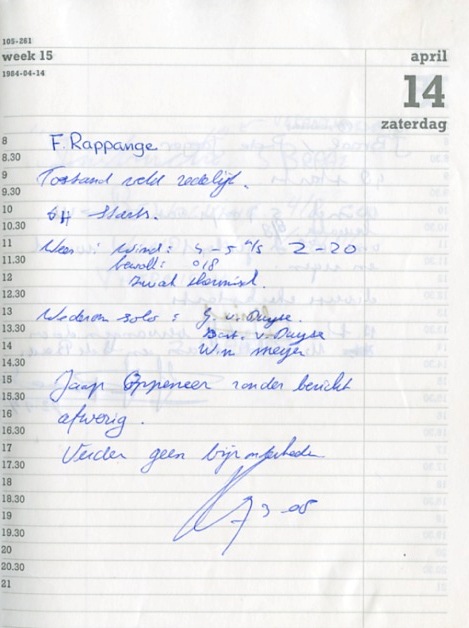 105-261
week 15
april
1984-04-14
14
zaterdag
8
F. Rappange
8.30
9
Toestand veld redelijk.
9.30
10
Starts.
10.30
11
Weer: Wind: 4-5 m/s 2-20
11.30
bewolk: 0/8
12
zwak thermisch.
12.30
13
Wederom solo: G. v. Duyse.
13.30
Bart. v. Duyse
14
Wim Meijer
14.30
15
Jaap zonder bericht
15.30
16
afwezig.
16.30
17
Verder geen bijzonderheden
17.30
18
18.30
19
19.30
20
20.30
21